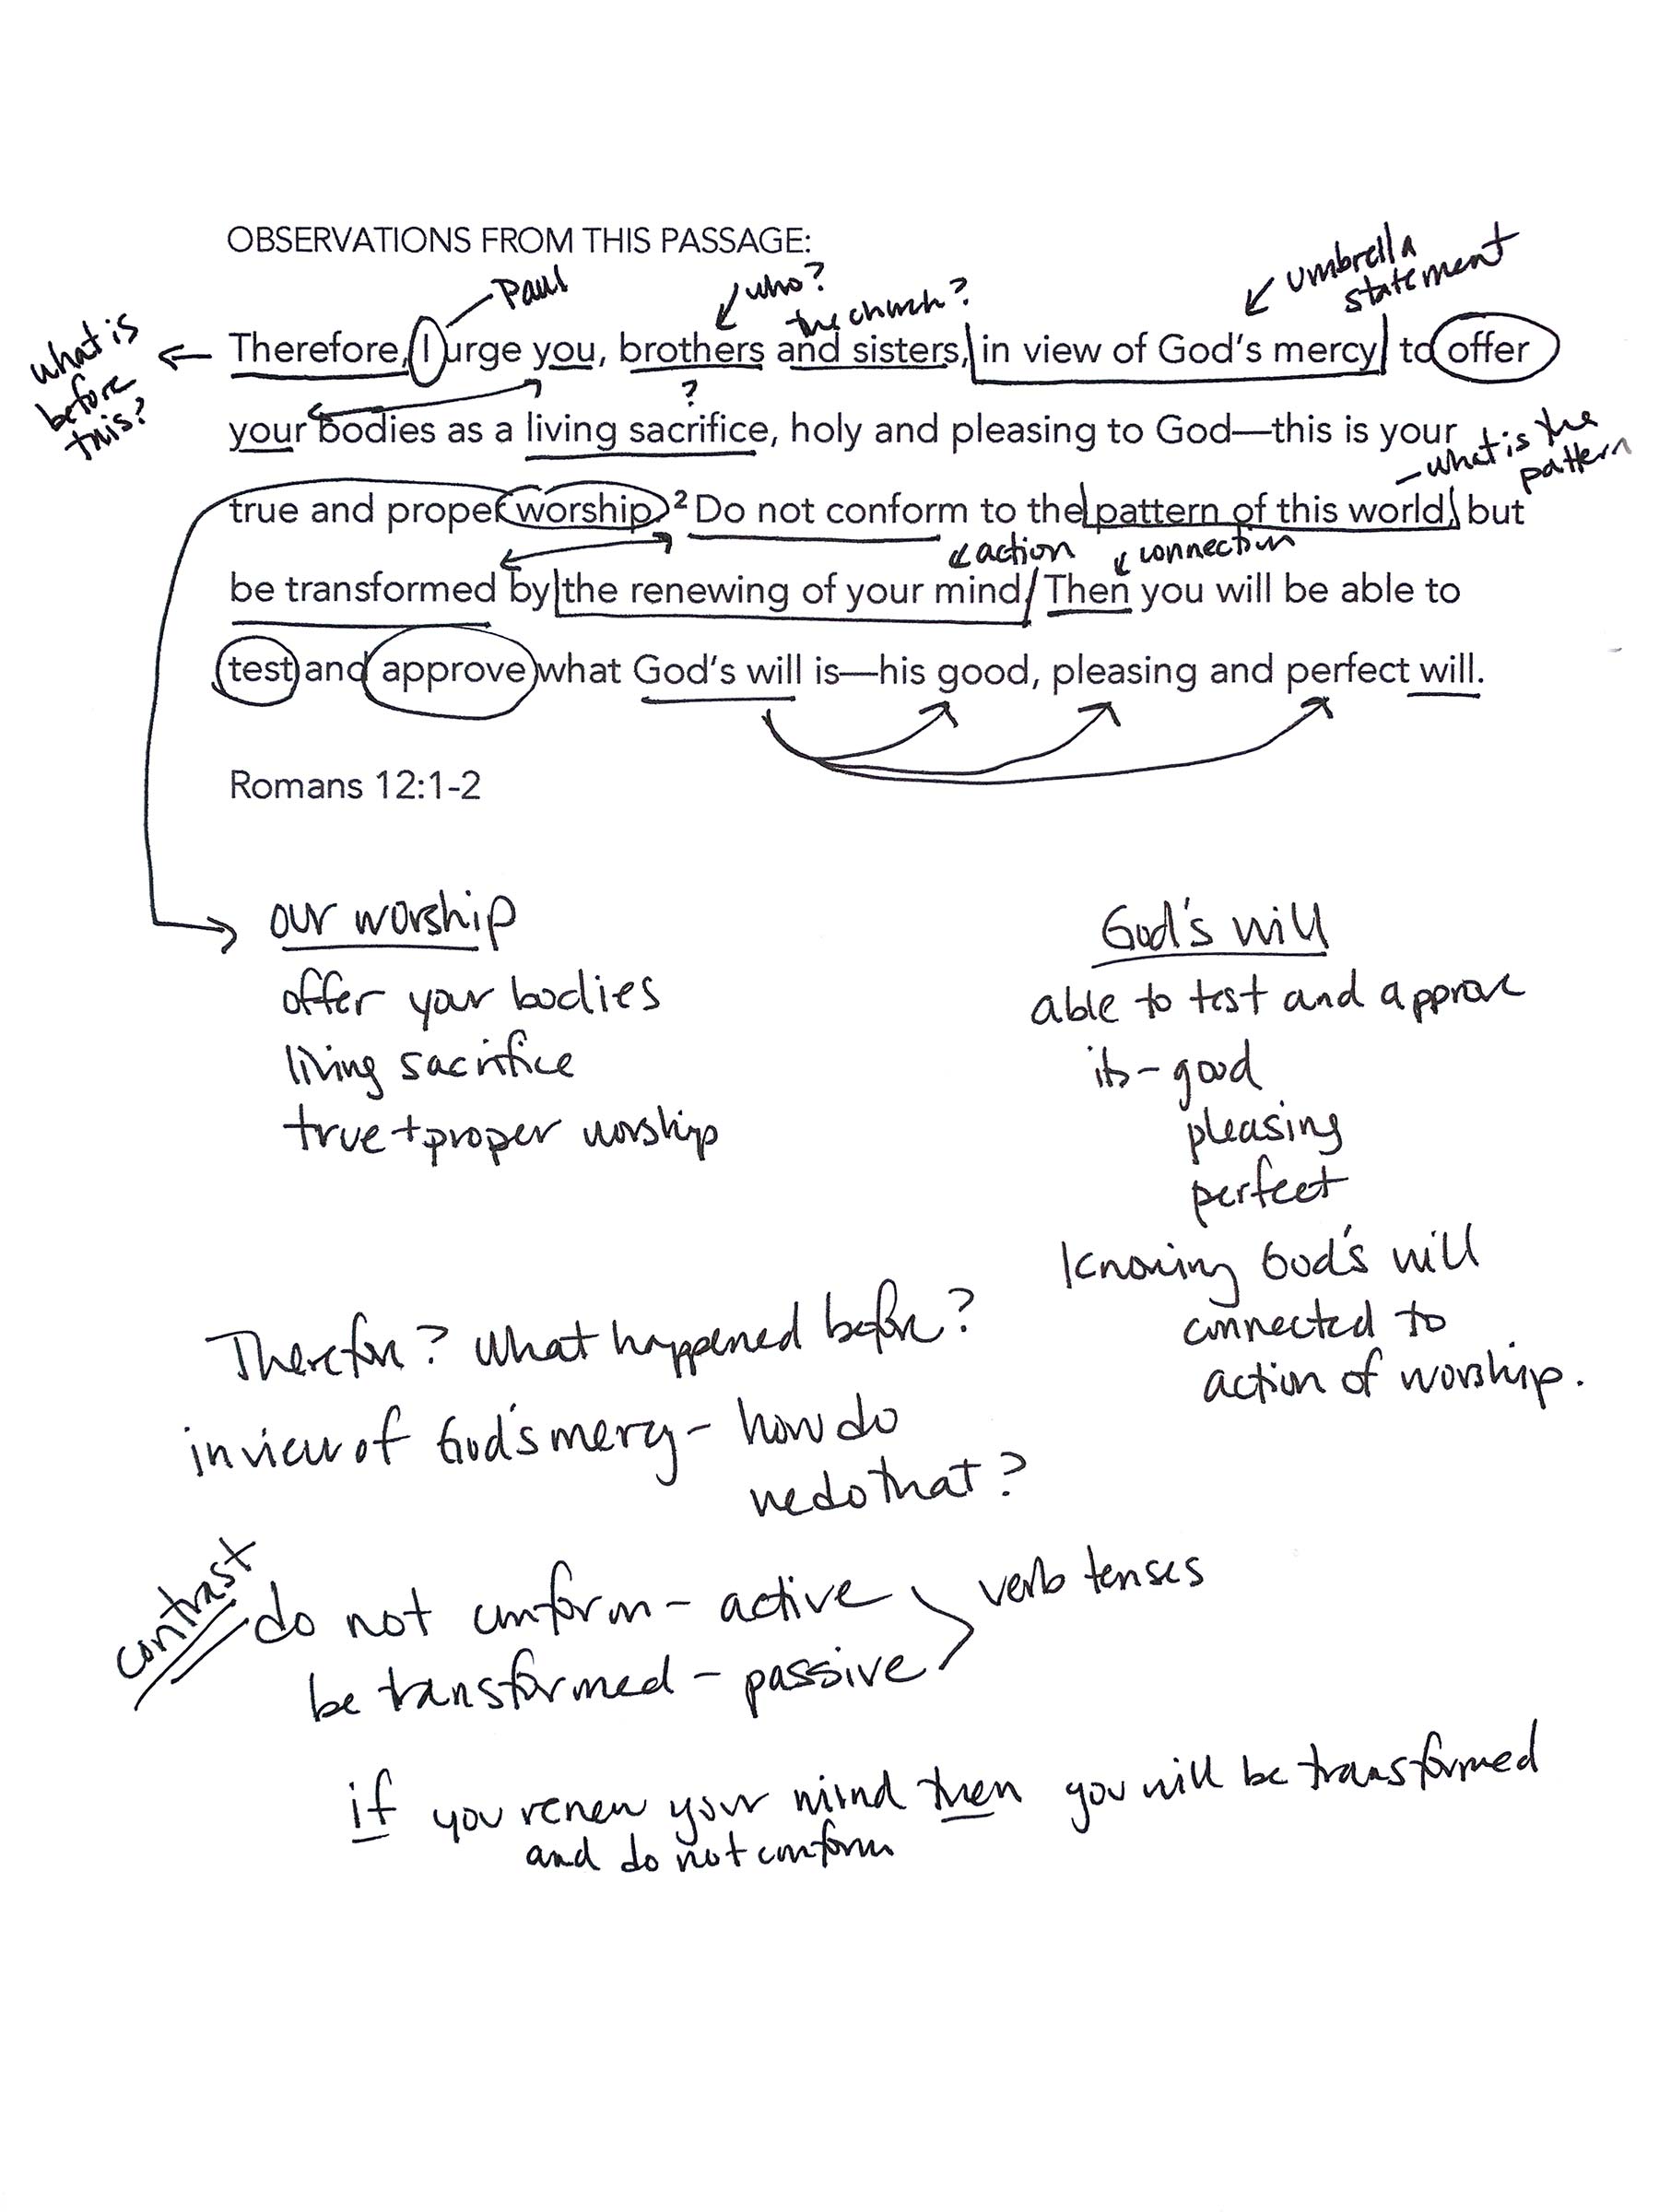 OBSERVATIONS FROM THIS PASSAGE:
umbrella
statement
Paul
who?
the church?
what is
before
this?
Therefore, I urge you, brothers and sisters, in view of God's mercy, to offer
?
your bodies as a living sacrifice, holy and pleasing to God—this is your
what is the
pattern
true and proper worship. 2 Do not conform to the pattern of this world, but
action
connection
be transformed by the renewing of your mind. Then you will be able to
test and approve what God's will is—his good, pleasing and perfect will.
Romans 12:1-2
our worship
offer your bodies
living sacrifice
true + proper worship
God's will
able to test and approve
its - good
pleasing
perfect
Knowing God's will
connected to
action of worship.
Therefore? What happened before?
in view of God's mercy - how do
we do that?
contrast
do not conform - active
be transformed - passive
verb tenses
if you renew your mind then you will be transformed
and do not conform